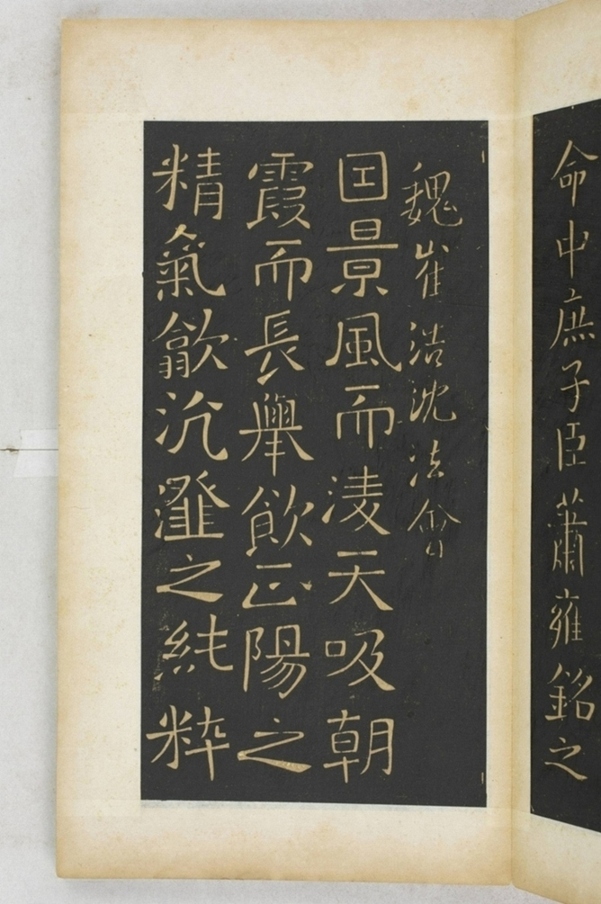 命中庶子臣蕭雍銘之
魏崔浩沈法會
囙景風而淩天吸朝
霞而長舉飲正陽之
精氣歙沆瀣之純粹